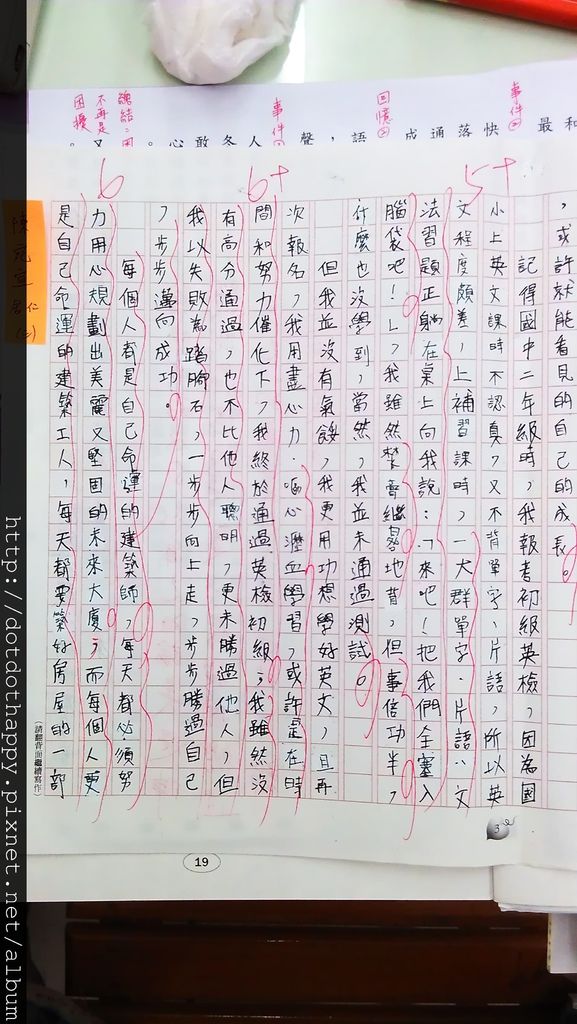 ，或許就能看見的自己的成長。
記得國中二年級時，我報考初級英檢，因為國
小上英文課時不認真，又不背單字、片語，所以英
文程度頗差，上補習課時，一大群單字、片語、文
法習題正躺在桌上向我說：「來吧！把我們全塞入
腦袋吧！」，我雖然焚膏繼晷地背，但事倍功半，
什麼也沒學到，當然，我並未通過測試。
但我並沒有氣餒，我更用功想學好英文，且再
次報名，我用盡心力、嘔心瀝血學習，或許是在時
間和努力催化下，我終於通過英檢初級；我雖然沒
有高分通過，也不比他人聰明，更未勝過他人，但
我以失敗為踏腳石，一步步向上走，步步勝過自己
，步步邁向成功。
每個人都是自己命運的建築師，每天都必須努
力用心規劃出美麗又堅固的未來大廈；而每個人更
是自己命運的建築工人，每天都要築好房屋的一部
(請翻背面繼續寫作)
5+
6+
6
19
3
最和
快落通成
語，聲
人冬敢心
又。
事件
回憶
事件
總結：困
不再是
困擾
陳
宣
(二)
http://dotdothappy.pixnet.net/album